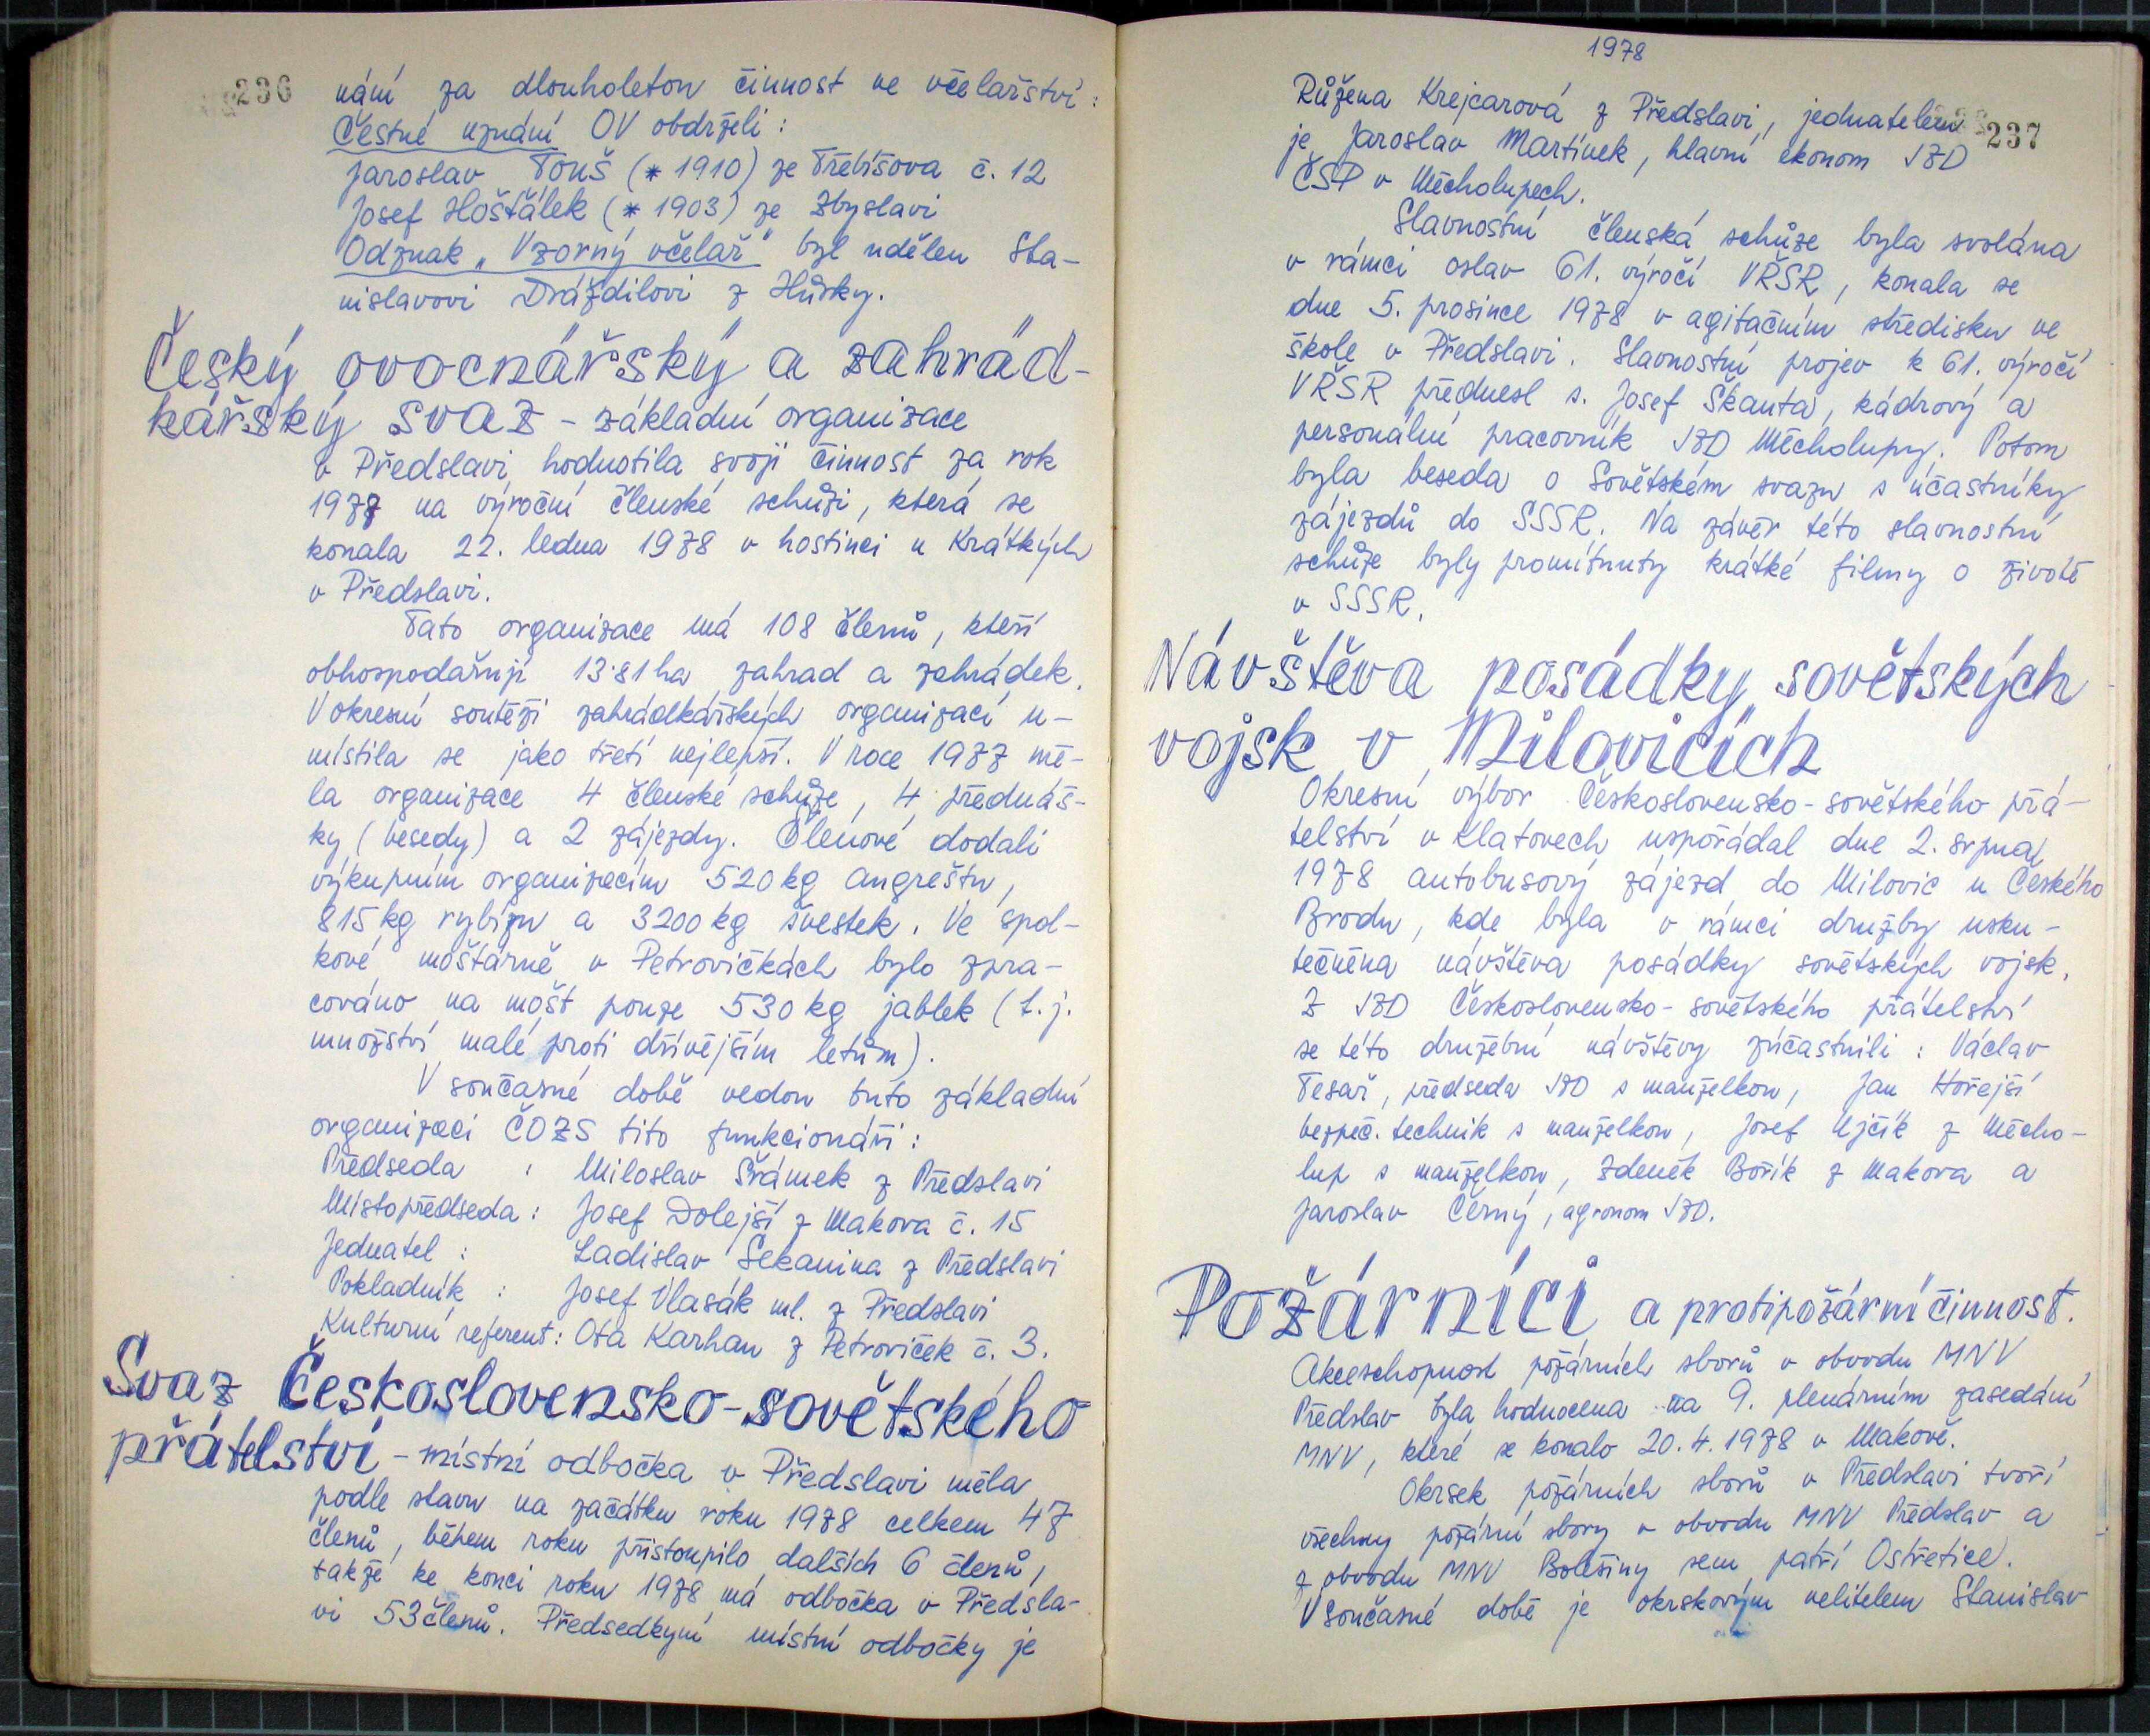 236
nání za dlouholetou činnost ve včelařství:
Čestné uznání OV obdrželi:
Jaroslav Touš (* 1910) ze Třebíšova č. 12
Josef Hošťálek (* 1903) ze Zbyslavi
Odznak „Vzorný včelař" byl udělen Sta-
nislavovi Dráždilovi z Hůrky.
Český ovocnářský a zahrád-
kářský svaz - základní organizace
v Předslavi hodnotila svoji činnost za rok
1977 na výroční členské schůzi, která se
konala 22. ledna 1978 v hostinci u Krátkých
v Předslavi.
Tato organizace má 108 členů, kteří
obhospodařují 13·81 ha zahrad a zahrádek.
V okresní soutěži zahrádkářských organizací u-
místila se jako třetí nejlepší. V roce 1977 mě-
la organizace 4 členské schůze, 4 přednáš-
ky (besedy) a 2 zájezdy. Členové dodali
výkupním organizacím 520 kg angreštu,
815 kg rybízu a 3200 kg švestek. Ve spol-
kové moštárně v Petrovičkách bylo zpra-
cováno na mošt pouze 530 kg jablek (t.j.
množství malé proti dřívějším letům).
V současné době vedou tuto základní
organizaci ČOZS tito funkcionáři:
Předseda : Miloslav Šrámek z Předslavi
Místopředseda: Josef Dolejší z Makova č. 15
Jednatel : Ladislav Sekanina z Předslavi
Pokladník : Josef Vlasák ml. z Předslavi
Kulturní referent: Ota Karhan z Petroviček č. 3.
Svaz Československo-sovětského
přátelství - místní odbočka v Předslavi měla
podle stavu na začátku roku 1978 celkem 47
členů, během roku přistoupilo dalších 6 členů,
takže ke konci roku 1978 má odbočka v Předsla-
vi 53 členů. Předsedkyní místní odbočky je
1978
237
Růžena Krejcarová z Předslavi, jednatelem
je Jaroslav Martínek, hlavní ekonom JZD
ČSP v Měcholupech.
Slavnostní členská schůze byla svolána
v rámci oslav 61. výročí VŘSR, konala se
dne 5. prosince 1978 v agitačním středisku ve
škole v Předslavi. Slavnostní projev k 61. výročí
VŘSR přednesl s. Josef Škanta, kádrový a
personální pracovník JZD Měcholupy. Potom
byla beseda o Sovětském svazu s účastníky
zájezdů do SSSR. Na závěr této slavnostní
schůze byly promítnuty krátké filmy o životě
v SSSR.
Návštěva posádky sovětských
vojsk v Milovicích
Okresní výbor Československo-sovětského přá-
telství v Klatovech uspořádal dne 2. srpna
1978 autobusový zájezd do Milovic u Českého
Brodu, kde byla v rámci družby usku-
tečněna návštěva posádky sovětských vojsk.
Z JZD Československo-sovětského přátelství
se této družební návštěvy zúčastnili: Václav
Tesař, předseda JZD s manželkou, Jan Hořejší
bezpeč. technik s manželkou, Josef Ujčík z Měcho-
lup s manželkou, Zdeněk Bořík z Makova a
Jaroslav Černý, agronom JZD.
Požárníci a protipožární činnost.
Akceschopnost požárních sborů v obvodu MNV
Předslav byla hodnocena na 9. plenárním zasedání
MNV, které se konalo 20.4.1978 v Makově.
Okrsek požárních sborů v Předslavi tvoří
všechny požární sbory v obvodu MNV Předslav a
z obvodu MNV Bolešiny sem patří Ostřetice.
V současné době je okrskovým velitelem Stanislav